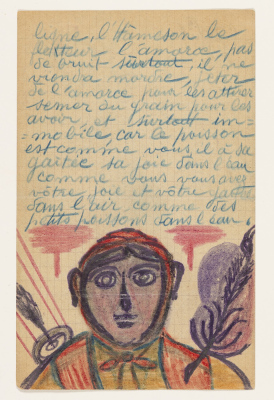 ligne, l'Hameson le
lotteur l'amorce, pas
de bruit surtout, il ne
viendra mordre, jeter
de l'amorce pour les attirer
semer du grain pour les
avoir, et surtout im-
-mobile car le poisson
est comme vous, il a sa
gaitée sa joie dans l'eau
comme vous vous avez
vôtre joie et vôtre gaitée
dans l'air comme des
petits poissons dans l'eau.